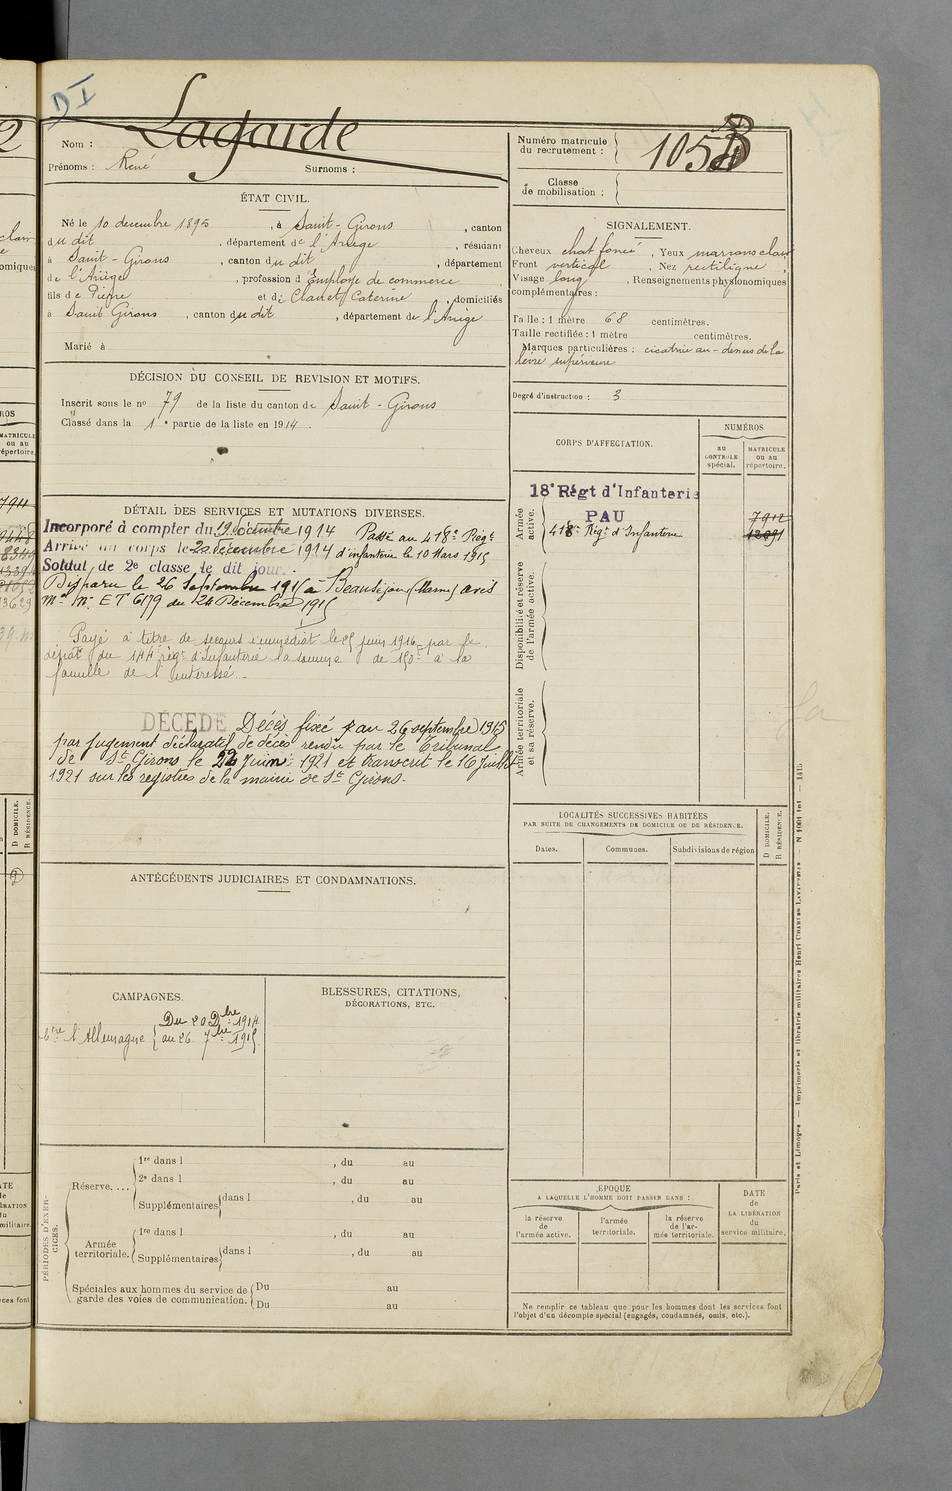 D I
Nom : Lagarde
Prénoms : René Surnoms :
ÉTAT CIVIL.
Né le 10 decembre 1895 , à Saint-Girons , canton
du dit , département de l'Ariège , résidant
à Saint-Girons , canton du dit , département
de l'Ariège , profession d'Employé de commerce
fils de Pierre et de Clanet Caterine , domiciliés
à Saint Girons , canton du dit , département de l'Ariège
Marié à
DÉCISION DU CONSEIL DE REVISION ET MOTIFS.
Inscrit sous le no 79 de la liste du canton de Saint-Girons
Classé dans la 1e partie de la liste en 1914.
DÉTAIL DES SERVICES ET MUTATIONS DIVERSES.
Incorporé à compter du 19 décembre 1914 Passé au 418e Régt
Arrivé au corps le 20 décembre 1914 d'infanterie le 10 Mars 1915
Soldat de 2e classe le dit jour.
Disparu le 26 Septembre 1915 à Beauséjour (Marne) avis
Mel No ET 6179 du 24 Décembre 1915
Payé à titre de secours immédiat le 25 juin 1916 par le
dépôt du 144 régt d'Infanterie la somme de 150f à la
famille de l'intéressé.
DÉCÉDÉ Décès fixé au 26 septembre 1915
par jugement déclaratif de décès rendu par le Tribunal
de St Girons le 22 Juin 1921 et transcrit le 16 Juillet
1921 sur les registres de la mairie de St Girons.
ANTÉCÉDENTS JUDICIAIRES ET CONDAMNATIONS.
CAMPAGNES.
Ctre l'Allemagne { Du 20 Dbre 1914
au 26 7bre 1915
BLESSURES, CITATIONS,
DÉCORATIONS, ETC.
PÉRIODES D'EXERCICES.
Réserve....
1re dans l , du au
2e dans l , du au
Supplémentaires dans l , du au
Armée territoriale.
1re dans l , du au
Supplémentaires dans l , du au
Spéciales aux hommes du service de
garde des voies de communication.
Du au
Du au
Numéro matricule
du recrutement : 1053
Classe
de mobilisation :
SIGNALEMENT.
Cheveux chat foncé , Yeux marrons clair
Front vertical , Nez rectiligne
Visage long , Renseignements physionomiques
complémentaires :
Taille : 1 mètre 68 centimètres.
Taille rectifiée : 1 mètre centimètres.
Marques particulières : cicatrice au-dessus de la
lèvre supérieure
Degré d'instruction : 3
CORPS D'AFFECTATION.
NUMÉROS
au
CONTRÔLE
spécial.
MATRICULE
ou au
répertoire.
Armée active.
18e Régt d'Infanterie
PAU 7912
418e Régt d'Infanterie 12091
Disponibilité et réserve
de l'armée active.
Armée territoriale
et sa réserve.
LOCALITÉS SUCCESSIVES HABITÉES
PAR SUITE DE CHANGEMENTS DE DOMICILE OU DE RÉSIDENCE.
Dates.
Communes.
Subdivisions de région
D DOMICILE.
R RÉSIDENCE.
ÉPOQUE
A LAQUELLE L'HOMME DOIT PASSER DANS :
la réserve
de
l'armée active.
l'armée
territoriale.
la réserve
de l'ar-
mée territoriale.
DATE
de
LA LIBÉRATION
du
service militaire.
Ne remplir ce tableau que pour les hommes dont les services font
l'objet d'un décompte spécial (engagés, condamnés, omis, etc.).
Paris et Limoges — Imprimerie et librairie militaires Henri CHARLES-LAVAUZELLE